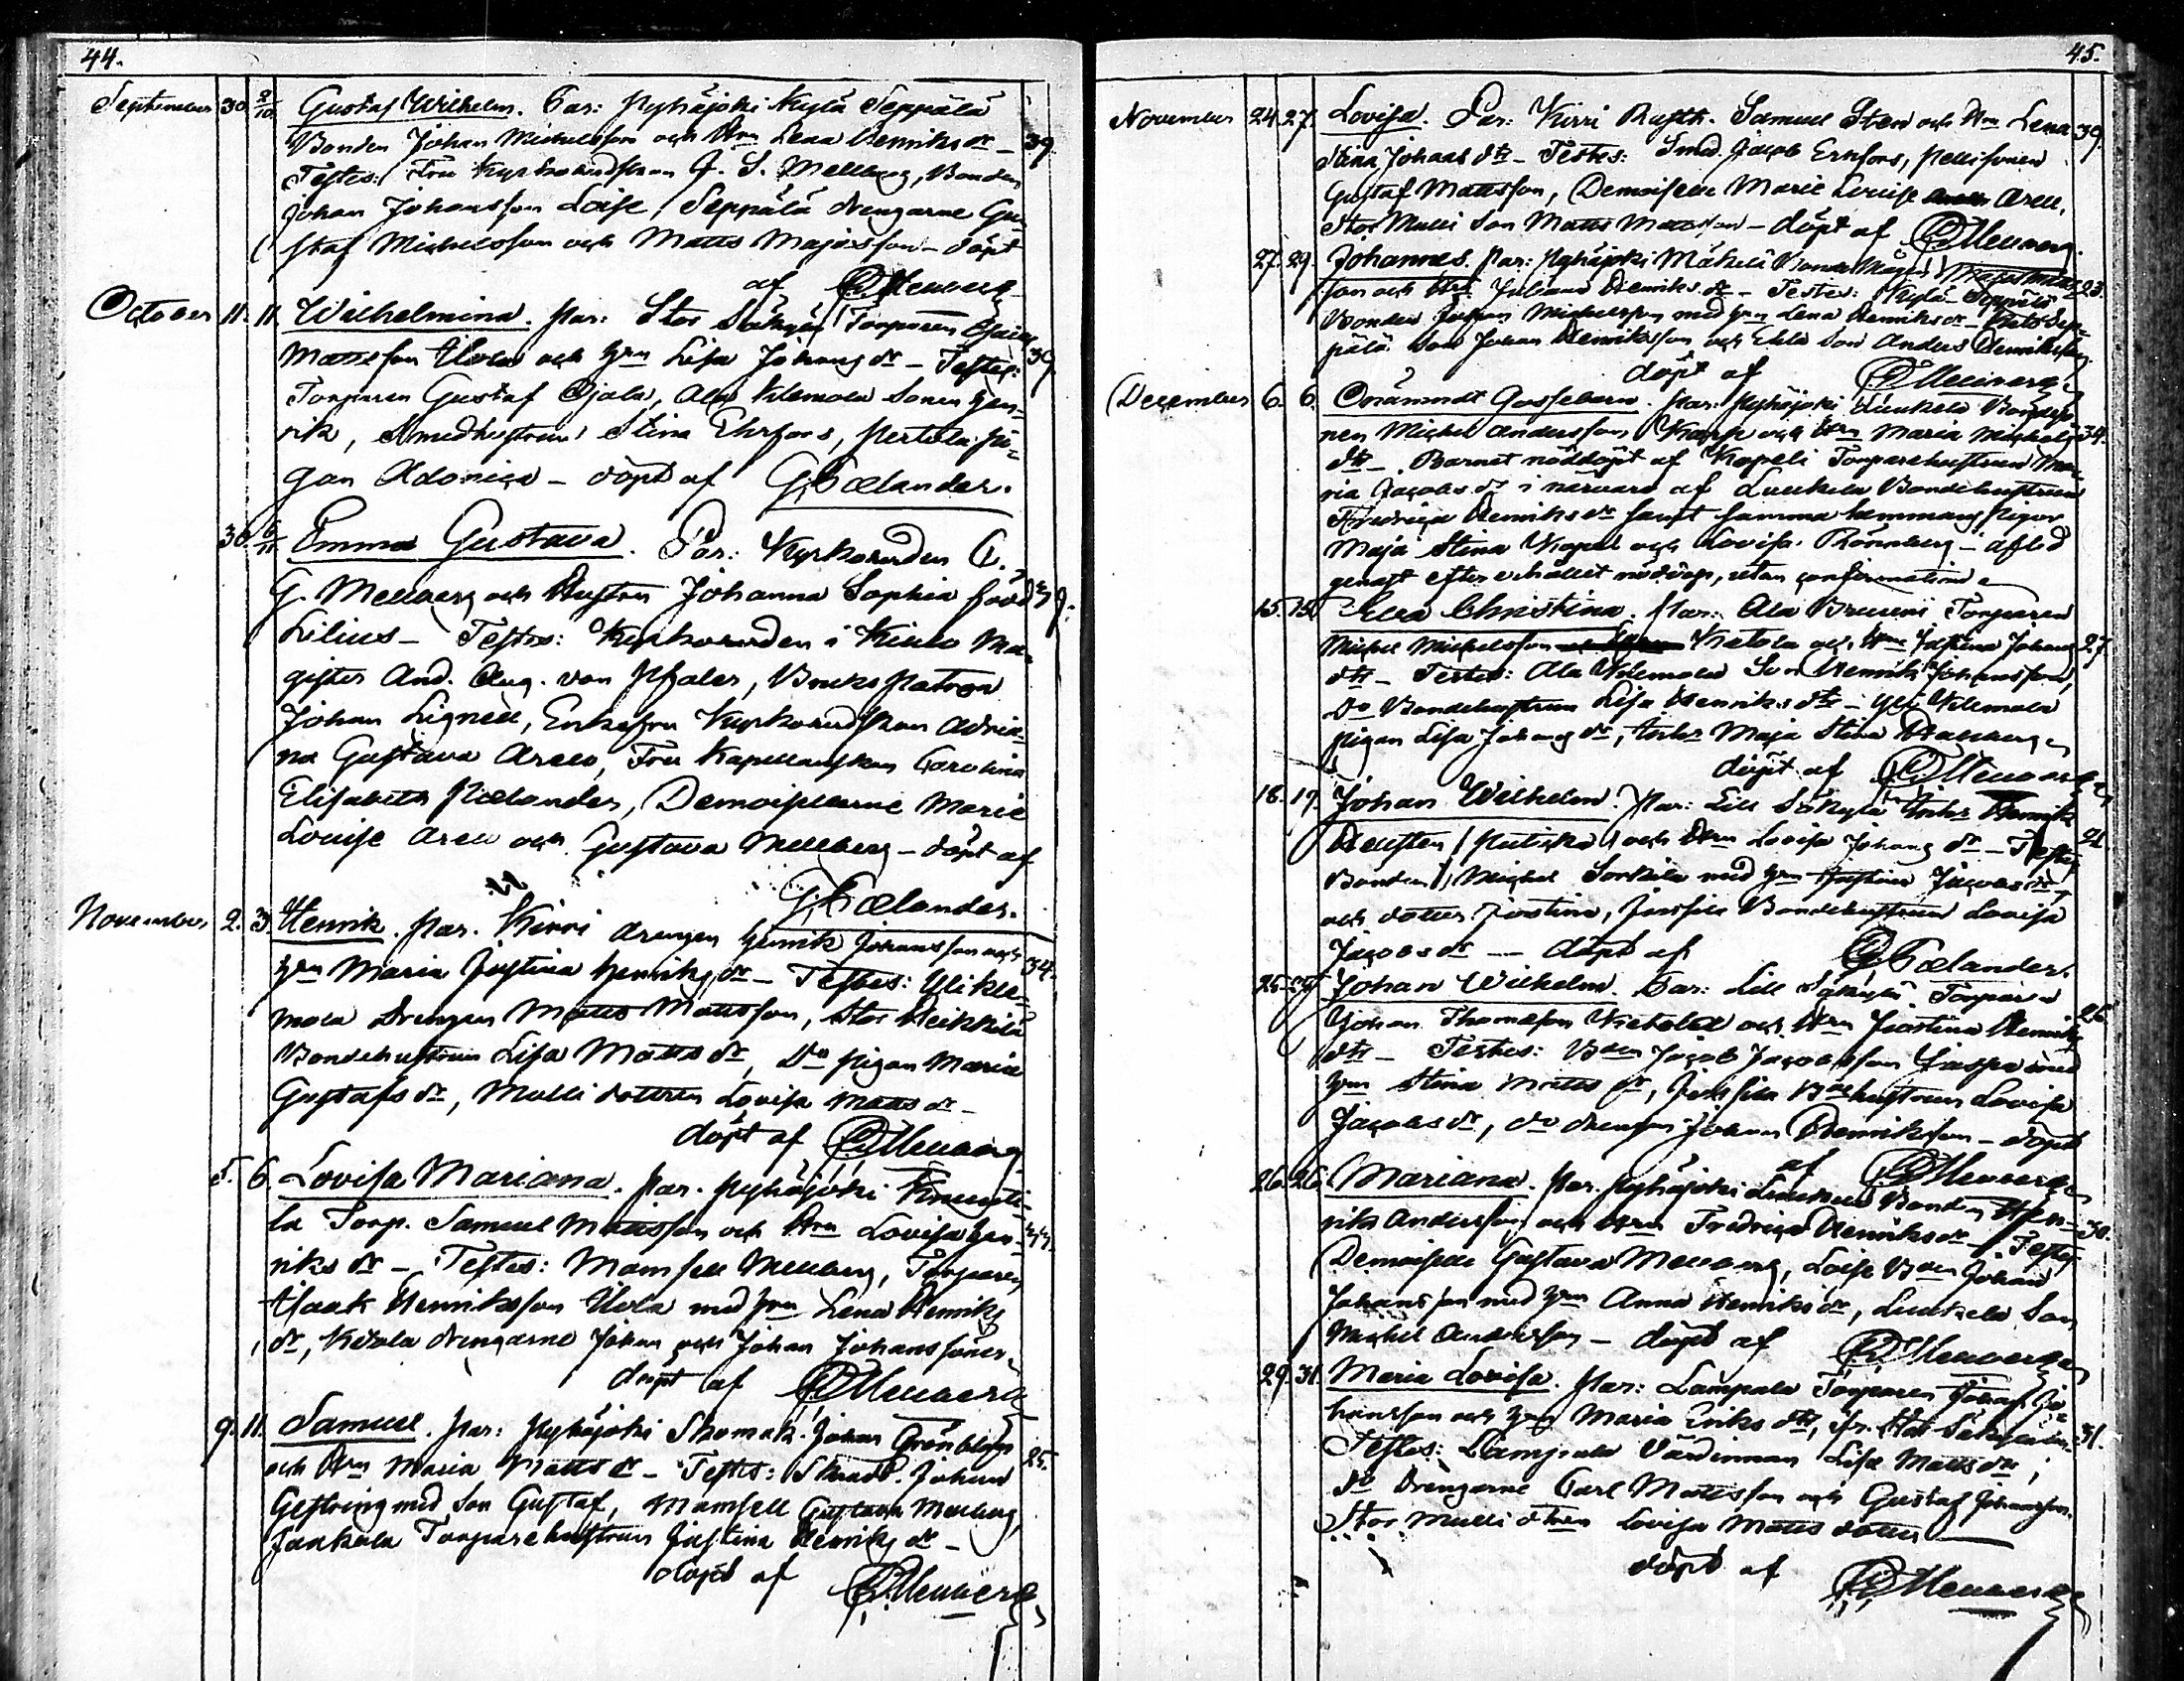 44.
September 30. 2/10. Gustaf Wilhelm. Par: Pyhäjoki Kylä Seppälä
Bonden Johan Michelsson och Hru Lena Henriks dr – 39.
Testes: Fru Kyrkoherdskan J. S. Mellberg, Bonden
Johan Johansson Loise, Seppälä drengarne Gu-
staf Michelsson och Matts Majasson – döpt
af Mellberg
October 11. 11. Wilhelmina. Par: Stor Säkylä Torparen
Mattsson Uola och hru Lisa Johans dr – Testes: 39.
Torparen Gustaf Ojala, Ala Kilemola Sonen Hen-
rik, Smedhustrun Stina Ehrfors, Pertola pi-
gan Adonica – döpt af G. Pælander.
30. 6/11 Emma Gustava. Par: Kyrkoherden C.
G. Mellberg och Hustru Johanna Sophia född
Lilius – Testes: Kyrkoherden i Kiulo Ma-
gister And. Aug. von Pfaler, Bruks Patron
Johan Lignell, Enkefru Kyrkoherdskan Adria-
na Gustava Arell, Fru Kapellanskan Carolina
Elisabeth Pælander, Demoisellerne Marie
Louise Arell och Gustava Mellberg – döpt af
G. Pælander.
November 2. 3. Henrik. Par. Kirri drengen Henrik Johansson och
hru Maria Justina Henriks dr – Testes: Ylikile- 34.
mola Drengen Matts Mattsson, Stor Heikkilä
Bondehustrun Lisa Matts dr, Do pigan Maria
Gustafs dr, Mulli dottren Lovisa Matts dr –
döpt af Mellberg
5. 6. Lovisa Mariana. Par. Pyhäjoki
la Torp. Samuel Mattsson och Hru Lovisa Hen-
riks dr – Testes: Mamsell Mellberg, Torparen
Isaak Henriksson Uola med hru Lena Henriks
dr, Ketola drengarne Johan och Johan Johanssöner
döpt af Mellberg
9. 11. Samuel. Par: Pyhäjoki Skomak. Johan Grönblom
och Hru Maria Matts dr – Testes: Johan 25.
Gestring med son Gustaf, Mamsell Gustava Mellberg,
Jaakola Torparehustrun Justina Henriks dr –
döpt af Mellberg
45.
November 24. 27. Lovisa. Par: Kirri Rusth. Samuel Sten och Hru Lena 39.
Stina Johans dtr – Testes: Smed. Jacob Ernfors,
Gustaf Mattsson, Demoiselle Marie Louise Arell,
Stor Mulli Son Matts Mattsson – döpt af Mellberg.
27. 29. Johannes. Par: Pyhäjoki Mäkelä Bonde 23.
son och Hru Juliana Henriks dr – Testes: Kylä Seppälä
Bonden Johan Michelsson med hru Lena Henriks dr – Sep-
pälä Son Johan Henriksson och Son Anders Henriksson
döpt af Mellberg
December 6. 6. Onämndt Gossebarn. Par: Pyhäjoki Luukela Bondeso-
nen Michel Andersson Karp och Hru Maria Michels 34.
dtr – Barnet nöddöpt af Kapeli Torparehustrun Ma-
ria Jacobs dr i närvaro af Luukela Bondehustrun
Fredrica Henriks dr samt samma hemmans pigor
Maja Stina och Lovisa Rönnberg – afled
genast efter erhållet nöddop, utan confirmation
15. 15. Eva Christina. Par: Ala Bruseni Torparen
Michel Michelsson Ketola och Hru Justina Johans 27.
dtr – Testes: Ala Kilemola Son Henrik Johansson,
Do Bondehustrun Lisa Henriks dtr – Yli Kilemola
pigan Lisa Johans dr, Maja Stina
döpt af Mellberg
18. 19. Johan Wilhelm. Par: Lill Säkylä Henrik
och Hru Lovisa Johans dr – Testes
Bonden Michel Sorkila med hru Justina Jacobs dr,
och dotter Justina, Bondehustrun Lovisa
Jacobs dr – döpt af G. Pælander.
25. Johan Wilhelm. Par: Lill Säkylä Torparen
Johan Thomasson Ketola och Hru Justina Henriks
dtr – Testes: Bden Jacob Jacobsson med
hru Stina Matts dr, hustrun Lovisa
Jacobs dr, do drengen Johan Henriksson – döpt
af Mellberg
26. 26. Mariana. Par. Pyhäjoki Luukela Bonden Hen-
rik Andersson och Hru Fredrica Henriks dr – Testes 30.
Demoiselle Gustava Mellberg, Loise Bden Johan
Johansson med hru Anna Henriks dr, Luukela Son
Michel Andersson – döpt af Mellberg
29. 31. Maria Lovisa. Par: Lampala Torparen Johan Jo-
hansson och hru Maria Eriks dtr, 31.
Testes: Lampala Värdinnan Lisa Matts dr,
do drengarne Carl Mattsson och Gustaf Johansson,
Stor Mulli dtren Lovisa Matts dotter
döpt af Mellberg